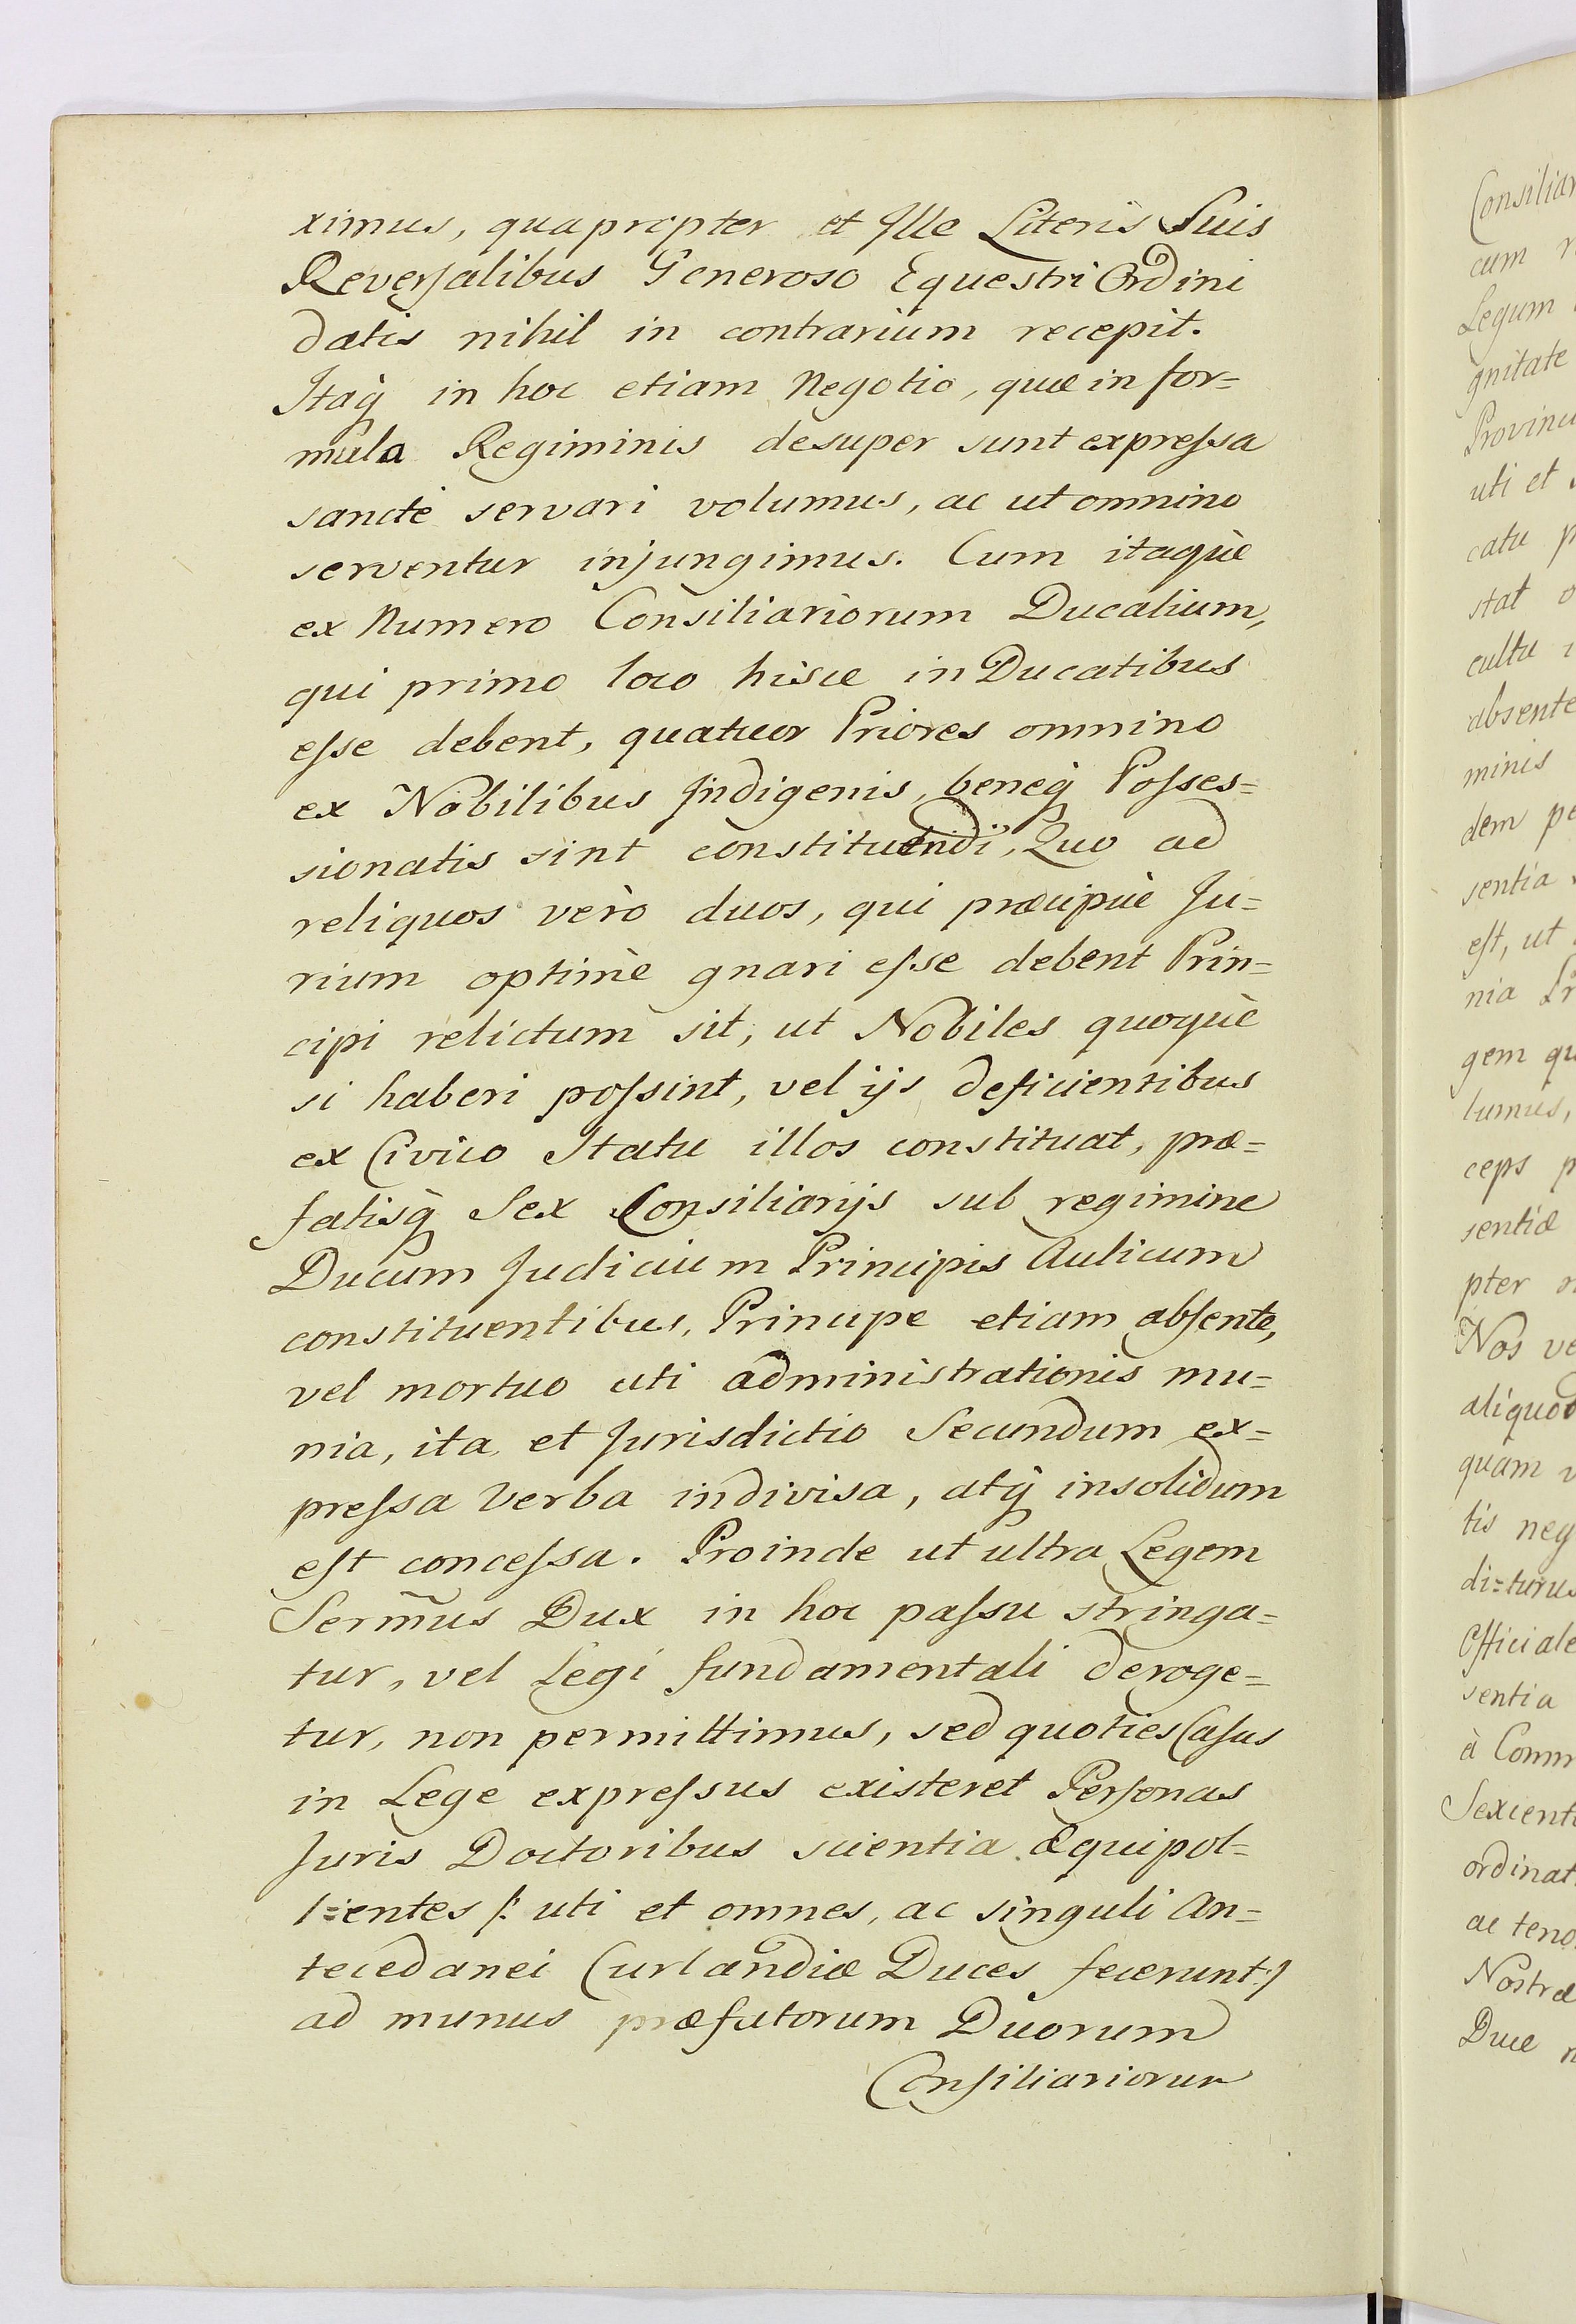 ximus, quapropter et Ille Literis Suis
Reversalibus Generoso Equestri Ordini
datis nihil in contrarium recepit.
Itaq; in hoc etiam Negotio, quæ in for=
mula Regiminis desuper sunt expressa
sanctè servari volumus, ac ut omnino
serventur injungimus. Cum itaquè
ex Numero Consiliariorum Ducalium,
qui primo loco hisce in Ducatibus
esse debent, quatuor Priores omnino
ex Nobilibus Indigenis, beneq; Posses=
sionatis sint constituendi, Quo ad
reliquos verò duos, qui præcipuè Ju=
rium optimè gnari esse debent Prin=
cipi relictum sit, ut Nobiles quoquè
si haberi possint, vel ijs deficientibus
ex Civico Statu illos constituat, præ=
fatisq; Sex Consiliarijs sub regimine
Ducum Judicium Principis Aulicum
constituentibus, Principe etiam absente,
vel mortuo uti administrationis mu=
nia, ita et Jurisdictio Secundum ex=
pressa Verba indivisa, atq; insolidum
est concessa. Proinde ut ultra Legem
Serm̄us Dux in hoc passu stringa=
tur, vel Legi fundamentali deroge=
tur, non permittimus, sed quoties Casus
in Lege expressus existeret Personas
Juris Doctoribus scientia æquipol=
l=entes /: uti et omnes, ac singuli An=
tecedanei Curlandiæ Duces fecerunt :/
ad munus præfatorum Duorum
Consiliariorum
Consiliar
cum
Legum
gnitate
Provinci
uti et
catu p
stat o
cultu
absente
minis
dem pe
sentia
est, ut
nia Pr
gem qu
lumus,
ceps p
sentiæ
pter n
Nos ve
aliquod
quam v
tis neg
di=turus
Officiale
sentia
à Comm
Sexcent
ordinat
ac teno
Nostræ
Duce n